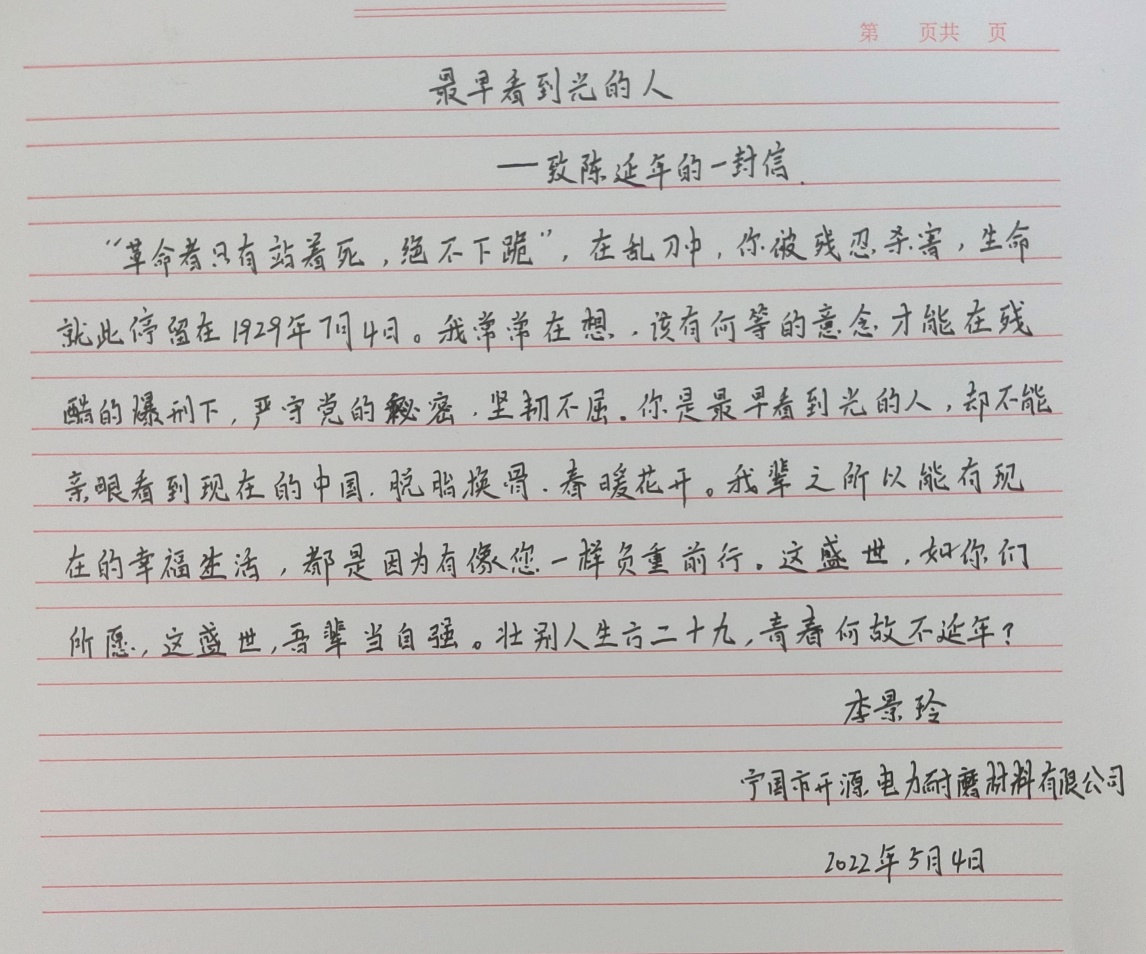 第 页共 页
最早看到光的人
——致陈延年的一封信.
“革命者只有站着死，绝不下跪”，在乱刀中，你被残忍杀害，生命
就此停留在1929年7月4日。我常常在想，该有何等的意念才能在残
酷的爆刑下，严守党的秘密，坚韧不屈。你是最早看到光的人，却不能
亲眼看到现在的中国，脱胎换骨，春暖花开。我辈之所以能有现
在的幸福生活，都是因为有像您一样负重前行。这盛世，如你们
所愿，这盛世，吾辈当自强。壮别人生六二十九，青春何故不延年？
李景玲
宁国市开源电力耐磨材料有限公司
2022年5月4日